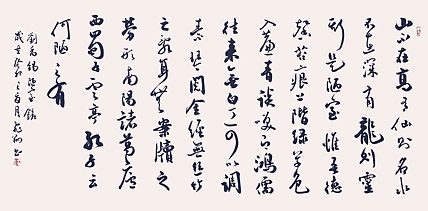 山不在高有仙則名水
不在深有龍則靈
斯是陋室惟吾德
馨苔痕上階綠草色
入簾青談笑有鴻儒
往來無白丁可以調
素琴閱金經無絲竹
之亂耳無案牘之
勞形南陽諸葛廬
西蜀子雲亭孔子云
何陋之有
劉禹錫陋室銘
歲在 月 書